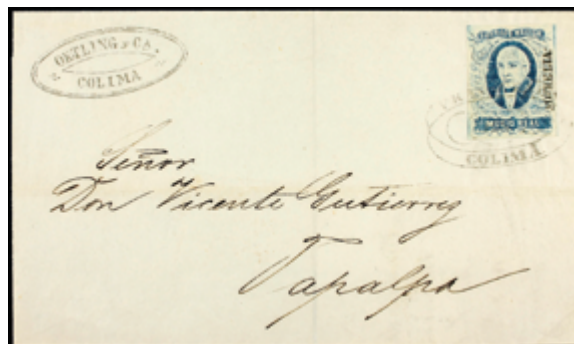 OETLING Y CA.
COLIMA
MEDIO REAL
COLIMA
Señor
Don Vicente Gutierrez
Tapalpa